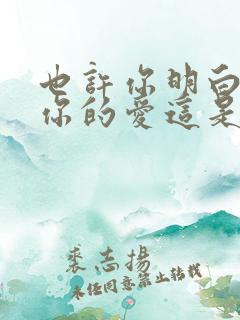 也許你明白
你的愛這是
裘志揚
未經同意禁止轉載